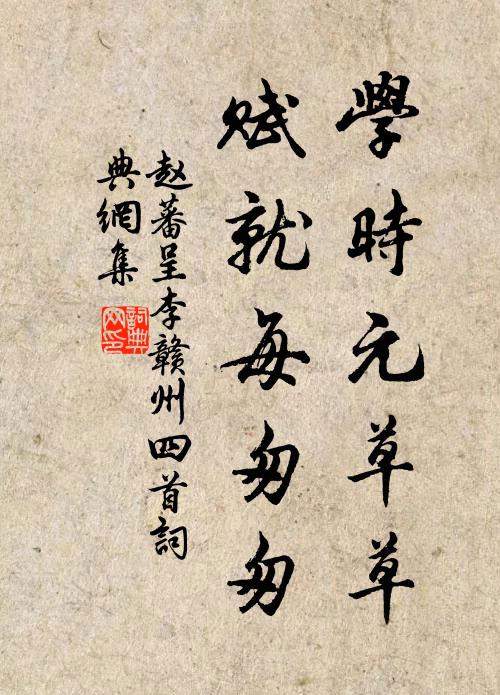 學時元草草
賦就每匆匆
赵蕃呈李贛州四首詞
典網集
詞典
网印